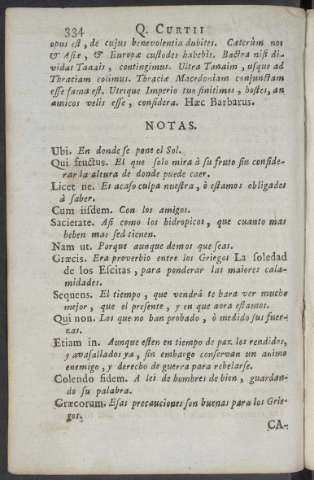 334 Q. CURTII
opus est, de cujus benevolentia dubites. Cæterùm nos
& Asiæ, & Europæ custodes habebis. Bactra nisi di-
vidat Tanais, contingimus. Ultra Tanaim, usque ad
Thraciam colimus. Thraciæ Macedoniam conjunctam
esse fama est. Utrique Imperio tuo finitimos, hostes, an
amicos velis esse, considera. Hæc Barbarus.
NOTAS.
Ubi. En donde se pone el Sol.
Qui fructus. El que solo mira à su fruto sin conside-
rar la altura de donde puede caer.
Licet ne. Es acaso culpa nuestra, ò estamos obligados
à saber.
Cum iisdem. Con los amigos.
Sacietate. Asi como los hidropicos, que cuanto mas
beben mas sed tienen.
Nam ut. Porque aunque demos que seas.
Græcis. Era proverbio entre los Griegos La soledad
de los Escitas, para ponderar las maiores cala-
midades.
Sequens. El tiempo, que vendrá te hara ver mucho
mejor, que el presente, y en que aora estamos.
Qui non. Los que no han probado, ò medido sus fuer-
zas.
Etiam in. Aunque esten en tiempo de paz los rendidos,
y avasallados ya, sin embargo conservan un animo
enemigo, y derecho de guerra para rebelarse.
Colendo fidem. A lei de hombres de bien, guardan-
do su palabra.
Græcorum. Esas precauciones son buenas para los Grie-
gos.
CA-